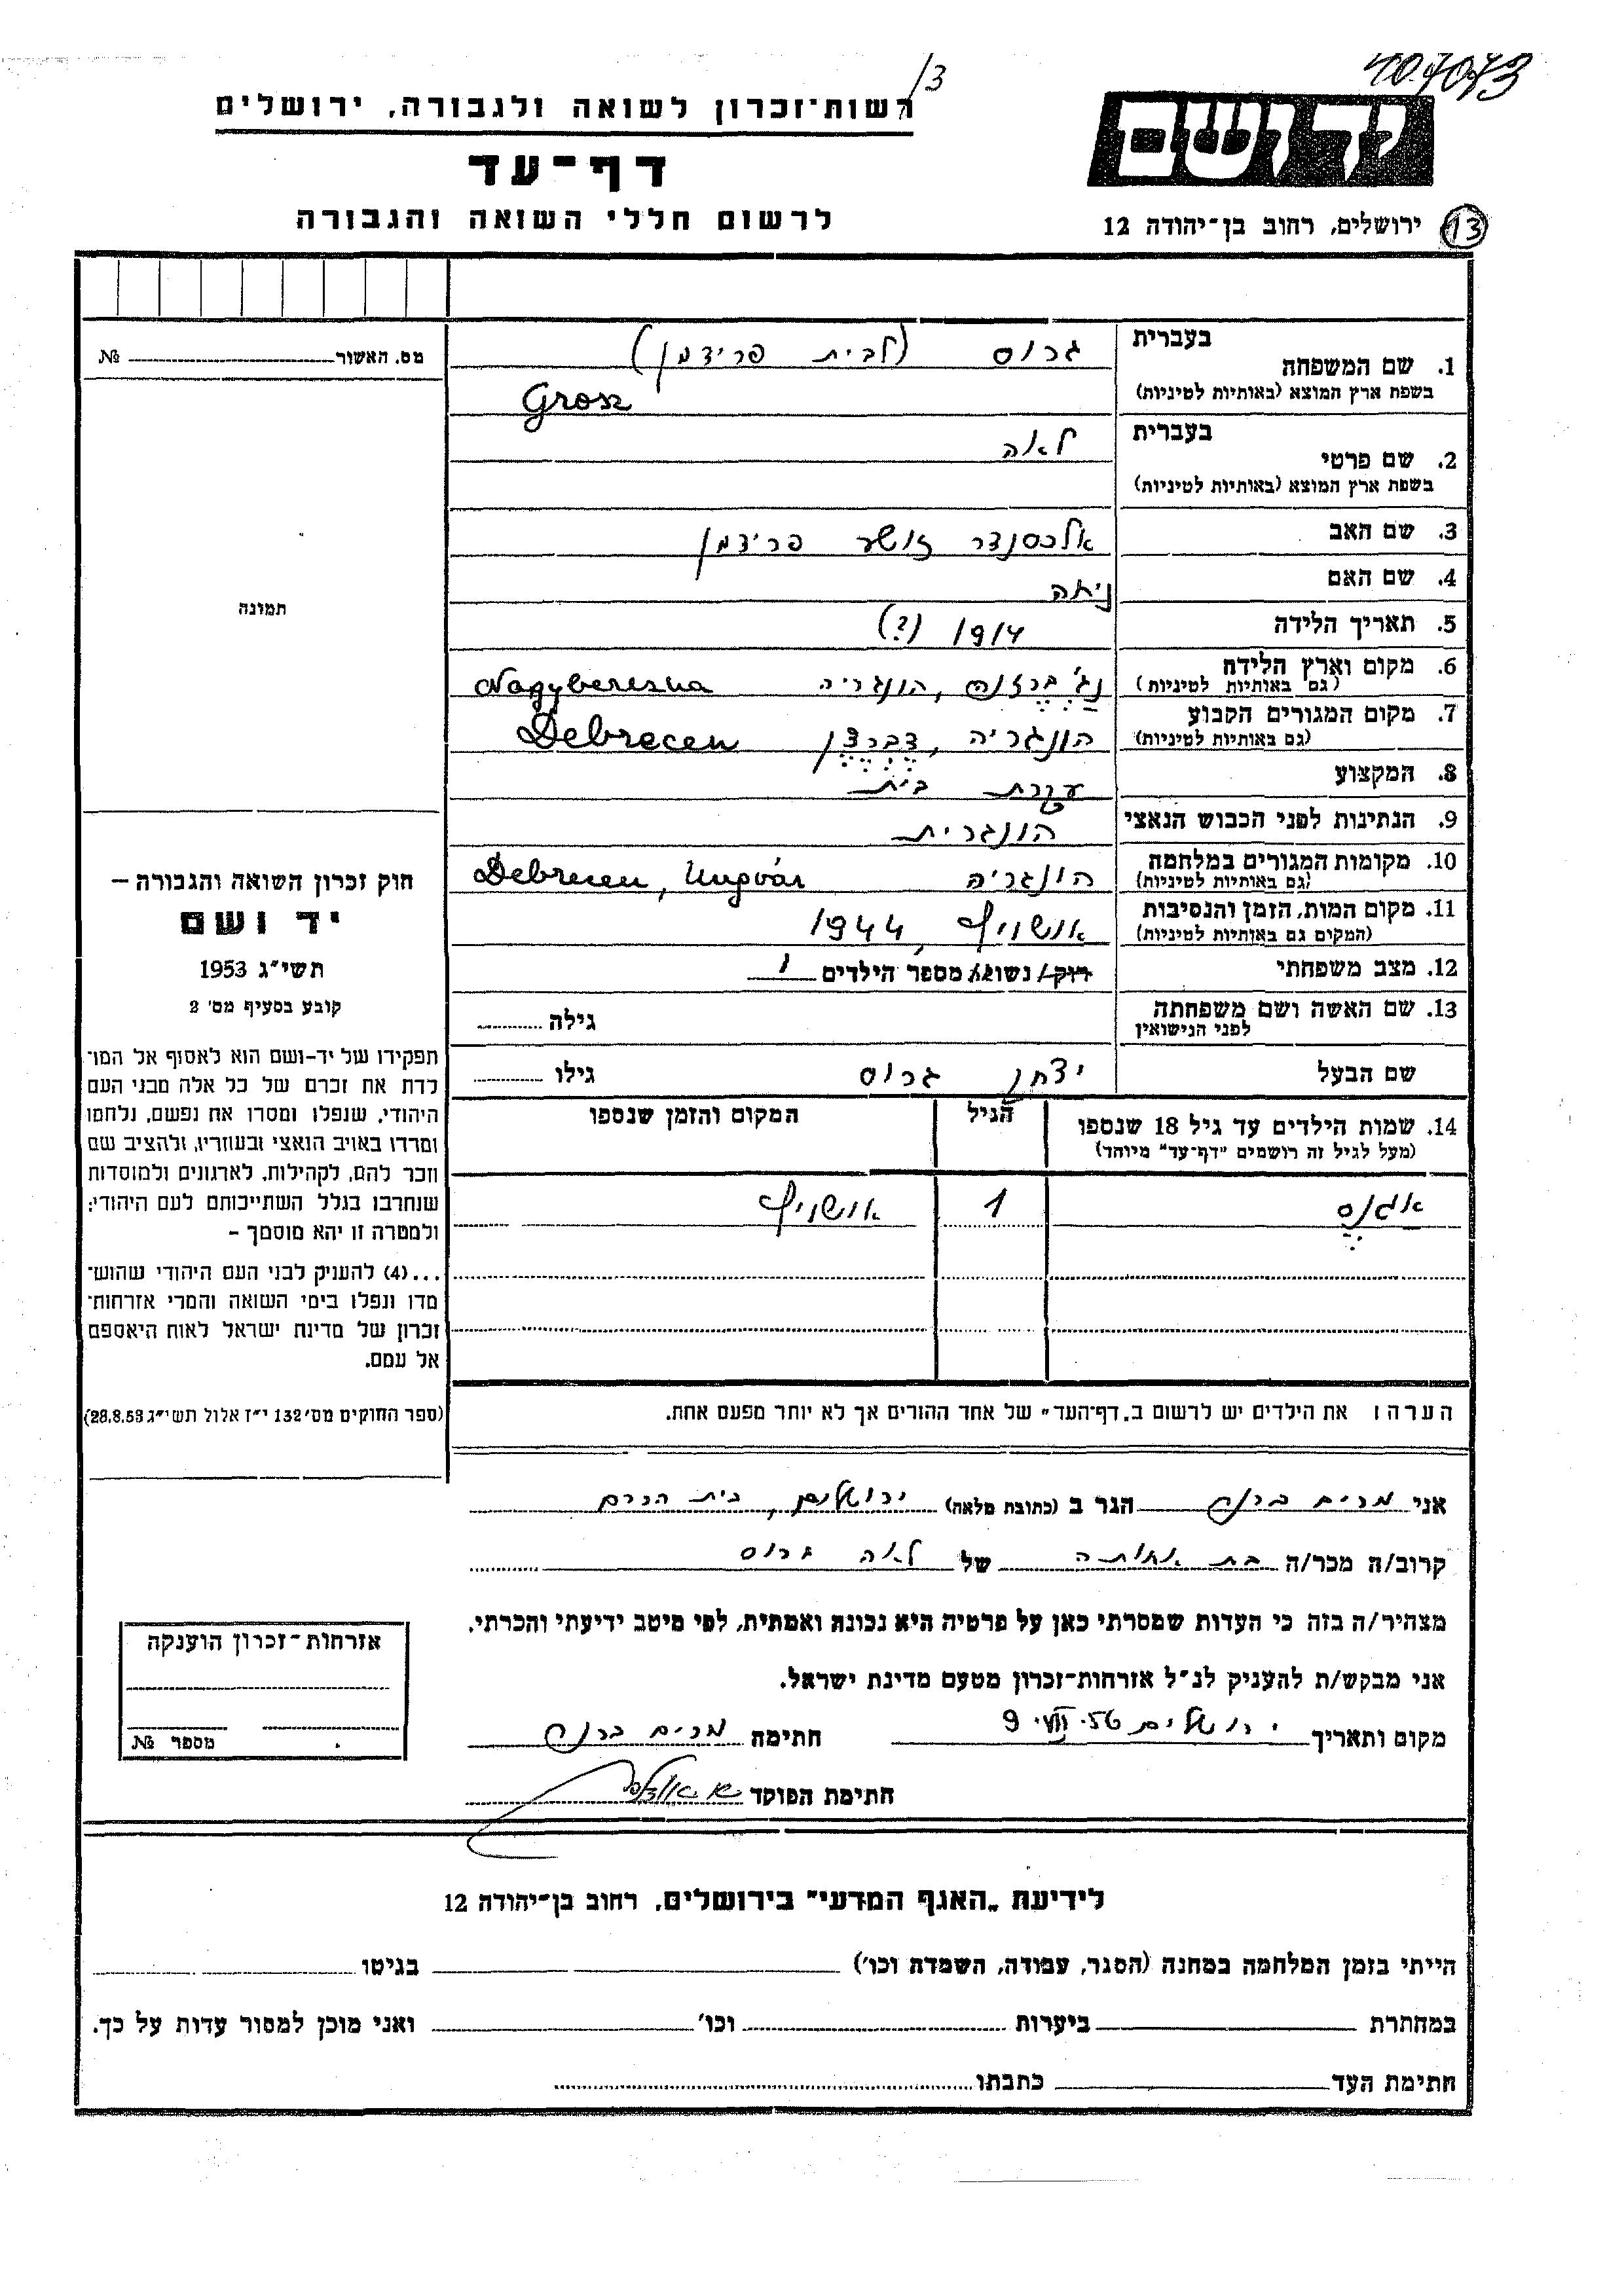 13
407073
רשות־זכרון לשואה ולגבורה, ירושלים
דף־עד
לרשום חללי השואה והגבורה
יד ושם
ירושלים, רחוב בן־יהודה 12
13
1. שם המשפחה
בעברית גרוס (לבית פרידמן)
בשפת ארץ המוצא (באותיות לטיניות) Grosz
2. שם פרטי
בעברית לאה
בשפת ארץ המוצא (באותיות לטיניות)
3. שם האב אלכסנדר זושא פרידמן
4. שם האם
5. תאריך הלידה 1914 (?)
6. מקום וארץ הלידה (גם באותיות לטיניות) נג' ברזנה, הונגריה Nagyberezna
7. מקום המגורים הקבוע (גם באותיות לטיניות) הונגריה, דברצן Debrecen
8. המקצוע עקרת בית
9. הנתינות לפני הכבוש הנאצי הונגרית
10. מקומות המגורים במלחמה (גם באותיות לטיניות) הונגריה Debrecen, Ungvár
11. מקום המות, הזמן והנסיבות (המקום גם באותיות לטיניות) אושויץ, 1944
12. מצב משפחתי רוק/ נשוא/ מספר הילדים 1
13. שם האשה ושם משפחתה לפני הנישואין גילה
שם הבעל יצחק גרוס גילו
14. שמות הילדים עד גיל 18 שנספו (מעל לגיל זה רושמים "דף־עד" מיוחד) הגיל המקום והזמן שנספו
אגנס 1 אושויץ
הערה: את הילדים יש לרשום ב„דף־העד" של אחד ההורים אך לא יותר מפעם אחת.
מס. האשור №
תמונה
חוק זכרון השואה והגבורה –
יד ושם
תשי"ג 1953
קובע בסעיף מס' 2
תפקידו של יד-ושם הוא לאסוף אל המו־
לדת את זכרם של כל אלה מבני העם
היהודי, שנפלו ומסרו את נפשם, נלחמו
ומרדו באויב הנאצי ובעוזריו, ולהציב שם
וזכר להם, לקהילות, לארגונים ולמוסדות
שנחרבו בגלל השתייכותם לעם היהודי;
ולמטרה זו יהא מוסמך –
...(4) להעניק לבני העם היהודי שהוש־
מדו ונפלו בימי השואה והמרי אזרחות־
זכרון של מדינת ישראל לאות היאספם
אל עמם.
(ספר החוקים מס' 132 י"ז אלול תשי"ג 28.8.53)
אני מרים הגר ב (כתובת מלאה) ירושלים, בית הכרם
קרוב/ה מכר/ה בת אחותה של לאה גרוס
מצהיר/ה בזה כי העדות שמסרתי כאן על פרטיה היא נכונה ואמתית, לפי מיטב ידיעתי והכרתי.
אני מבקש/ת להעניק לנ"ל אזרחות-זכרון מטעם מדינת ישראל.
מקום ותאריך ירושלים 9.VII.56 חתימה מרים
חתימת הפוקד
אזרחות-זכרון הוענקה
מספר №
לידיעת „האגף המדעי" בירושלים, רחוב בן־יהודה 12
הייתי בזמן המלחמה במחנה (הסגר, עבודה, השמדה וכו') בגיטו
במחתרת ביערות וכו' ואני מוכן למסור עדות על כך.
חתימת העד כתבתו